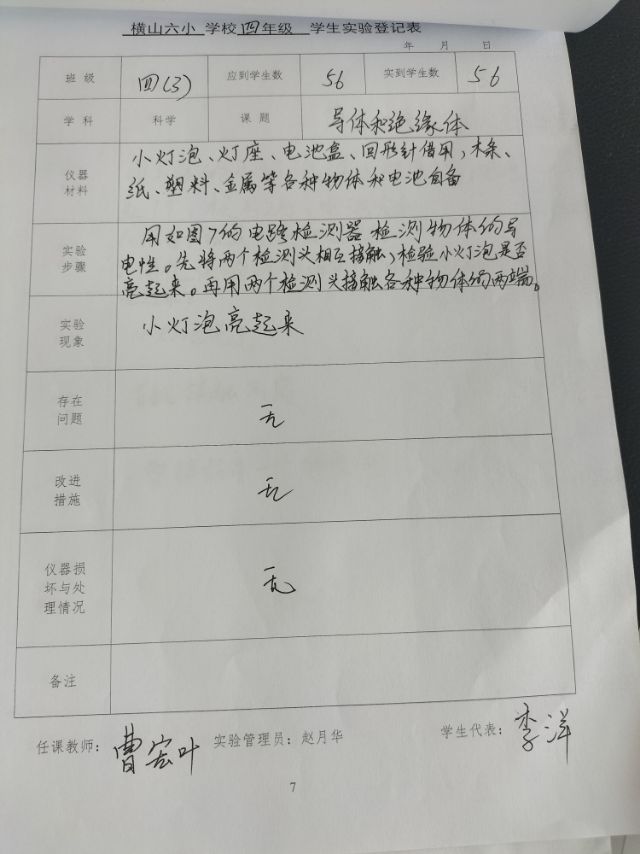 横山六小 学校 四年级 学生实验登记表
年 月 日
班 级 四(3) 应到学生数 56 实到学生数 56
学 科 科学 课 题 导体和绝缘体
仪器材料 小灯泡、灯座、电池盒、回形针借用,木条、
纸、塑料、金属等各种物体和电池自备
实验步骤 用如图7的电路检测器检测物体的导
电性。先将两个检测头相互接触,检验小灯泡是否
亮起来。再用两个检测头接触各种物体的两端。
实验现象 小灯泡亮起来
存在问题 无
改进措施 无
仪器损坏与处理情况 无
备注
任课教师: 曹宏叶 实验管理员: 赵月华 学生代表: 李洋
7